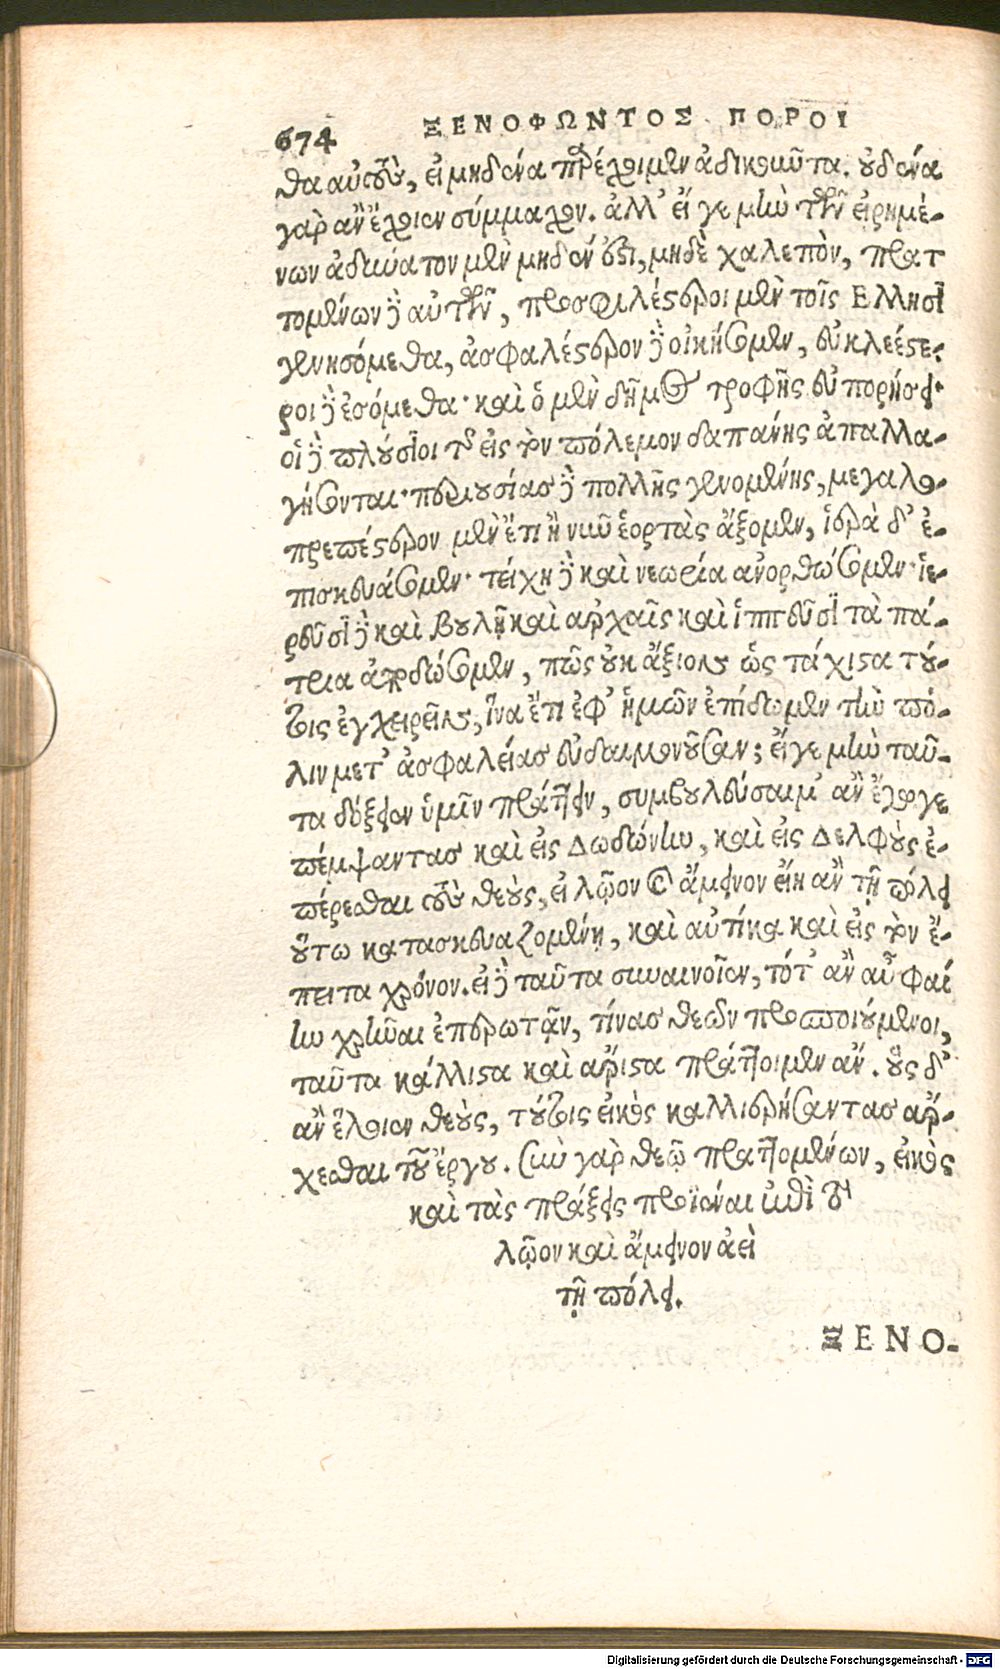 674 ΞΕΝΟΦΩΝΤΟΣ ΠΟΡΟΙ
θα αὐτοὺς, εἰ μηδένα παρέχοιμεν ἀδικοῦντα. οὐδένα
γὰρ ἂν ἔχοιεν σύμμαχον. ἀλλ' εἴ γε μὴν τῶν εἰρημέ-
νων ἀδύνατον μὲν μηδέν ἐστι, μηδὲ χαλεπὸν, πρατ
τομένων δὲ αὐτῶν, προσφιλέστεροι μὲν τοῖς Ελλησι
γενησόμεθα, ἀσφαλέστερον δὲ οἰκήσομεν, εὐκλεέστε-
ροι δὲ ἐσόμεθα· καὶ ὁ μὲν δῆμος τροφῆς εὐπορήσει·
οἱ δὲ πλούσιοι τῆς εἰς τὸν πόλεμον δαπάνης ἀπαλλα-
γήσονται· περιουσίας δὲ πολλῆς γενομένης, μεγαλο-
πρεπέστερον μὲν ἔτι ἢ νῦν ἑορτὰς ἄξομεν, ἱερὰ δ' ἐ-
πισκευάσομεν· τείχη δὲ καὶ νεώρια ἀνορθώσομεν· ἱε-
ρεῦσι δὲ καὶ βουλῇ καὶ ἀρχαῖς καὶ ἱππεῦσι τὰ πά-
τρια ἀποδώσομεν, πῶς οὐκ ἄξιον ὡς τάχιστα τού-
τοις ἐγχειρεῖν, ἵνα ἔτι ἐφ' ἡμῶν ἐπίδωμεν τὴν πό-
λιν μετ' ἀσφαλείας εὐδαιμονοῦσαν; εἴ γε μὴν ταῦ-
τα δόξειεν ὑμῖν πράττειν, συμβουλεύσαιμ' ἂν ἔγωγε
πέμψαντας καὶ εἰς Δωδώνην, καὶ εἰς Δελφοὺς ἐ-
πέρεσθαι τοὺς θεοὺς, εἰ λῷον καὶ ἄμεινον εἴη ἂν τῇ πόλει
οὕτω κατασκευαζομένῃ, καὶ αὐτίκα καὶ εἰς τὸν ἔ-
πειτα χρόνον. εἰ δὲ ταῦτα συναινοῖεν, τότ' ἂν αὖ φαί
ην χρῆναι ἐπερωτᾷν, τίνας θεῶν προσποιούμενοι,
ταῦτα κάλλιστα καὶ ἄριστα πράττοιμεν ἄν. οὓς δ'
ἂν ἕλοιεν θεοὺς, τούτοις εἰκὸς καλλιερήσαντας ἄρ-
χεσθαι τοῦ ἔργου. σὺν γὰρ θεῷ πραττομένων, εἰκὸς
καὶ τὰς πράξεις προϊέναι ἐπὶ τὸ
λῷον καὶ ἄμεινον ἀεὶ
τῇ πόλει.
ΞΕΝΟ-
Digitalisierung gefördert durch die Deutsche Forschungsgemeinschaft - DFG